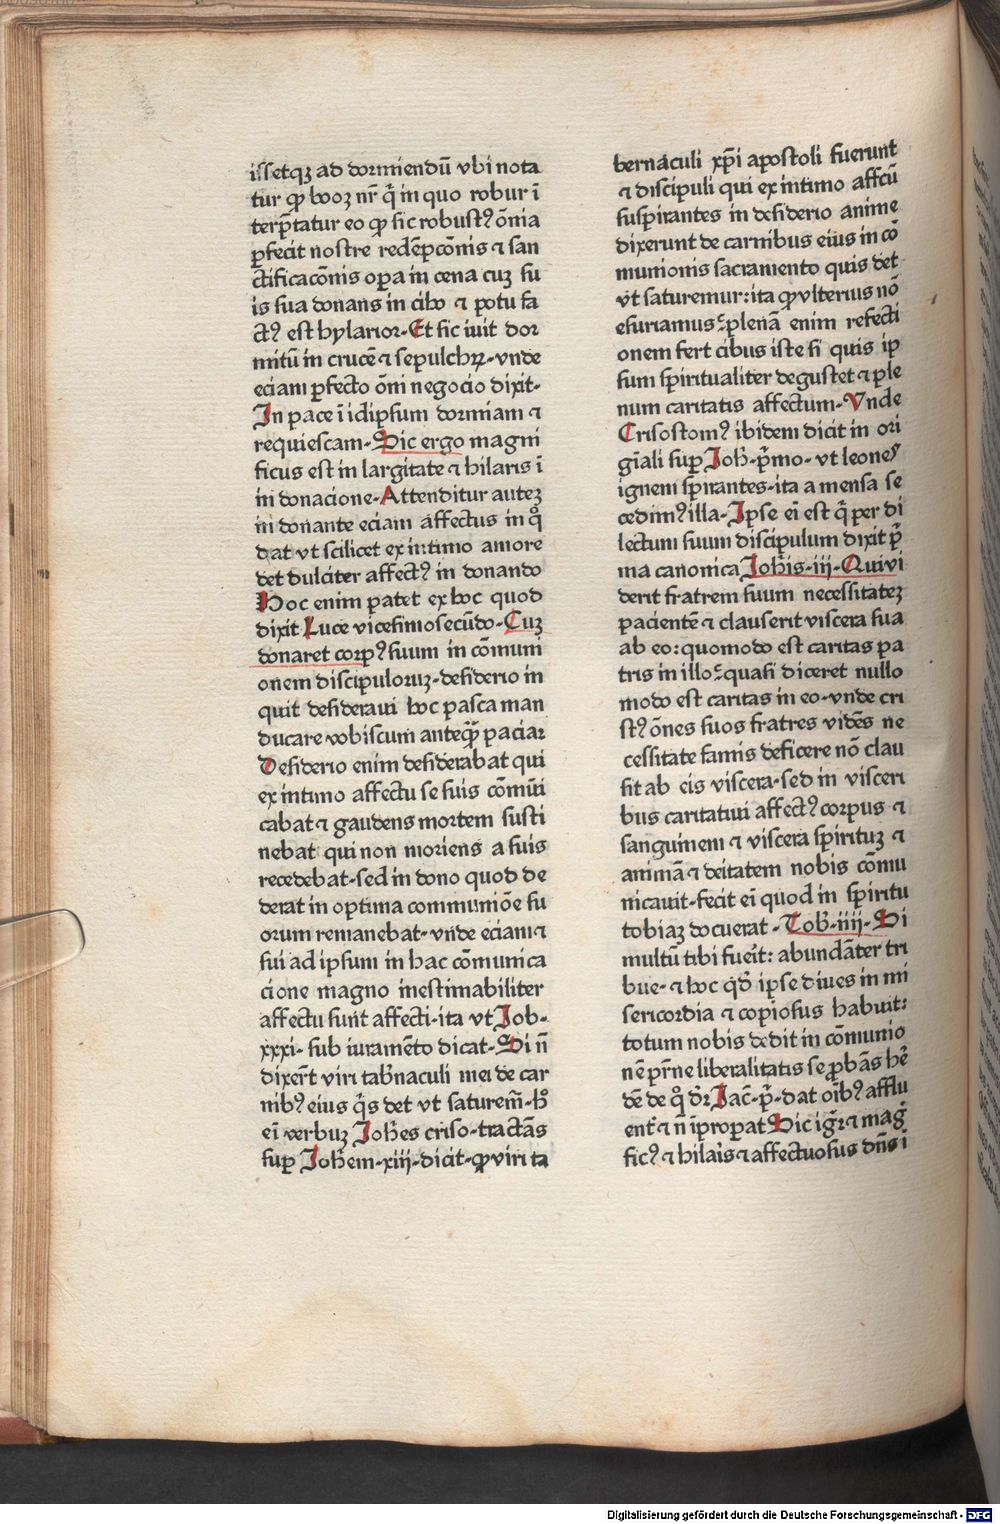 issetqꝫ ad dormiendū vbi nota
tur ꝙ booz nr̄ q̄ in quo robur ī
terp̄tatur eo ꝙ sic robustꝰ ōnia
ꝑfecit nostre redēpcōnis ⁊ san
ctificacōnis oꝑa in cena cuꝫ su
is sua donans in cibo ⁊ potu fa
ctꝰ est hylarior· Et sic iuit dor
mitū in crucē ⁊ sepulchꝝ· vnde
eciam ꝑfecto ōni negocio dixit·
In pace ī idipsum dormiam ⁊
requiescam· Sic ergo magni
ficus est in largitate ⁊ hilaris ī
in donacione· Attenditur auteꝫ
in donante eciam affectus in qͦ
dat vt scilicet ex intimo amore
det dulciter affectꝰ in donando
Hoc enim patet ex hoc quod
dixit Luce vicesimosecūdo· Cuꝫ
donaret corpꝰ suum in cōmuni
onem discipuloruꝫ· desiderio in
quit desideraui hoc pasca man
ducare vobiscum anteqͣꝫ paciar
Desiderio enim desiderabat qui
ex intimo affectu se suis cōmūi
cabat ⁊ gaudens mortem susti
nebat qui non moriens a suis
recedebat· sed in dono quod de
derat in optima communiōe su
orum remanebat· vnde eciam ⁊
sui ad ipsum in hac cōmunica
cione magno inestimabiliter
affectu sunt affecti· ita vt Iob·
xxxi· sub iuramēto dicat· Si n̄
dixer̄t viri tab̄naculi mei de car
nibꝰ eius qͥs det vt saturem̄· hͦ
ei verbuꝫ Iohēs criso· tractās
suꝑ Ioh̄em· xiii· dicit· ꝙ viri ta
bernaculi xp̄i apostoli fuerunt
⁊ discipuli qui ex intimo affcū
suspirantes in desiderio anime
dixerunt de carnibus eius in cō
munionis sacramento quis det
vt saturemur: ita ꝙ vlterius nō
esuriamus· plenā enim refecti
onem fert cibus iste si quis ip
sum spiritualiter degustet ⁊ ple
num caritatis affectum· Vnde
Crisostomꝰ ibidem dicit in ori
gīali suꝑ Ioh̄· p̄mo· vt leones
ignem spirantes· ita a mensa se
cedimꝰ illa· Ipse ei est q̄ per di
lectum suum discipulum dixit p̄
ma canonica Ioh̄is· iii· Qui vi
derit fratrem suum necessitateꝫ
pacientē ⁊ clauserit viscera sua
ab eo: quomodo est caritas pa
tris in illo· quasi diceret nullo
modo est caritas in eo· vnde cri
stꝰ ōnes suos fratres vidēs ne
cessitate famis deficere nō clau
sit ab eis viscera· sed in visceri
bus caritatiui affectꝰ corpus ⁊
sanguinem ⁊ viscera spirituꝫ ⁊
animā ⁊ deitatem nobis cōmu
nicauit· fecit ei quod in spiritu
tobiaꝫ docuerat· Tob̄· iiij· Si
multū tibi fuerīt: abundāter tri
bue· ⁊ hoc qd̄ ipse diues in mi
sericordia ⁊ copiosus habuit:
totum nobis dedit in cōmunio
nē pr̄ne liberalitatis se ꝓbās hr̄e
dē de qͦ dr̄ Iac̄· p̄· dat oībꝰ afflu
ent̄ ⁊ n̄ īproperat Sic igr̄ ⁊ mag
ficꝰ ⁊ hilaīs ⁊ affectuosus dn̄s i
Digitalisierung gefördert durch die Deutsche Forschungsgemeinschaft - DFG